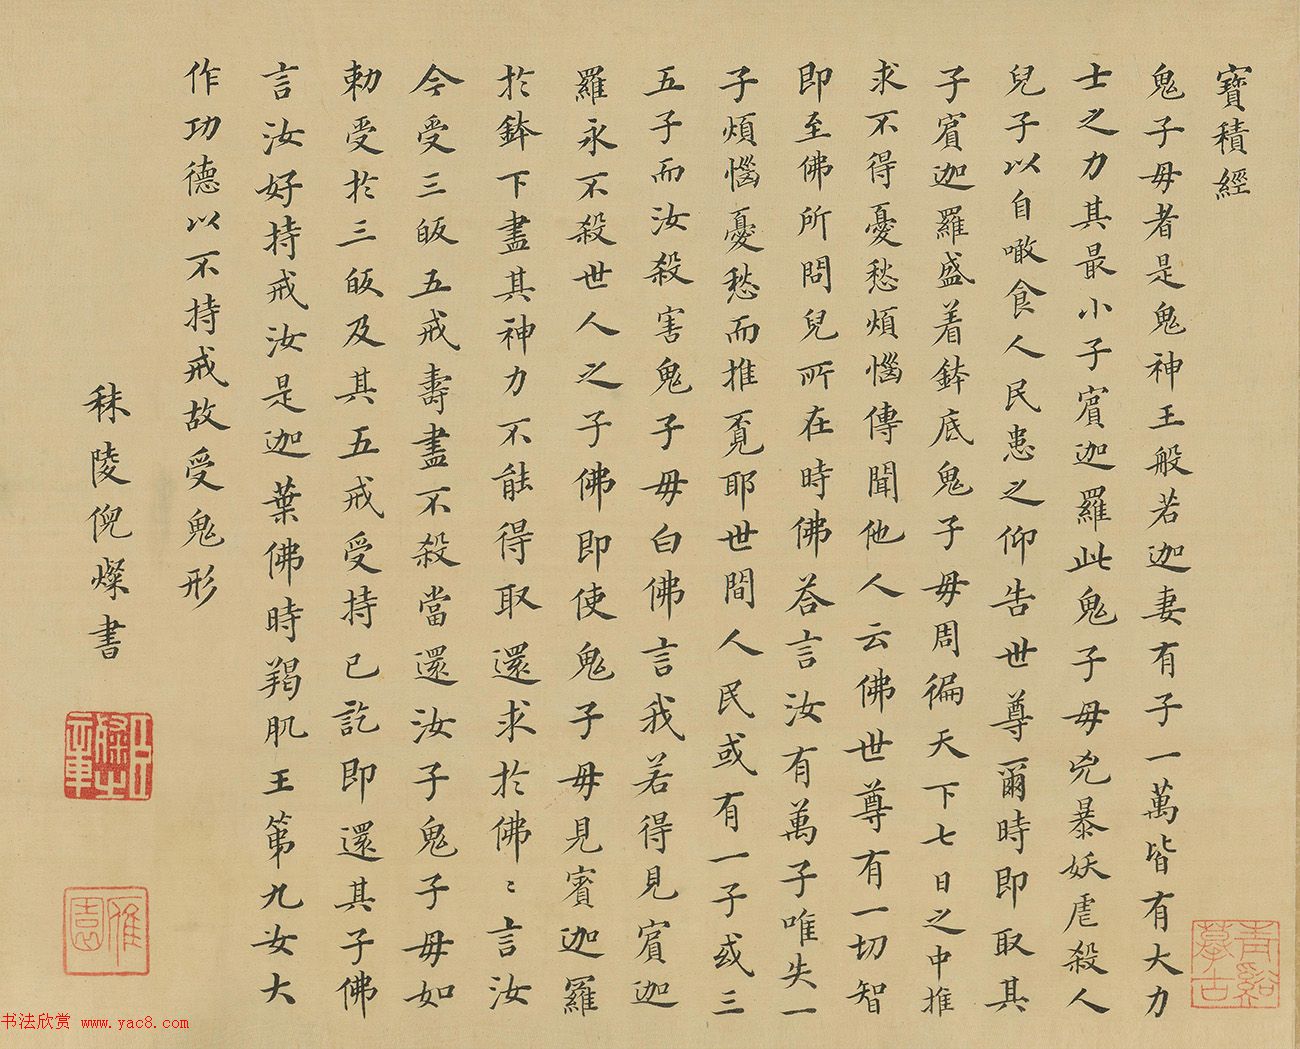 寶積經
鬼子母者是鬼神王般若迦妻有子一萬皆有大力
士之力其最小子賓迦羅此鬼子母兇暴妖虐殺人
兒子以自噉食人民患之仰告世尊爾時即取其
子賓迦羅盛着鉢底鬼子母周徧天下七日之中推
求不得憂愁煩惱傳聞他人云佛世尊有一切智
即至佛所問兒所在時佛荅言汝有萬子唯失一
子煩惱憂愁而推覓耶世間人民或有一子或三
五子而汝殺害鬼子母白佛言我若得見賓迦
羅永不殺世人之子佛即使鬼子母見賓迦羅
於鉢下盡其神力不能得取還求於佛〻言汝
今受三皈五戒壽盡不殺當還汝子鬼子母如
勅受於三皈及其五戒受持已訖即還其子佛
言汝好持戒汝是迦葉佛時羯肌王第九女大
作功德以不持戒故受鬼形
秣陵倪燦書
雁園
青谿
摹古
书法欣赏 www.yac8.com